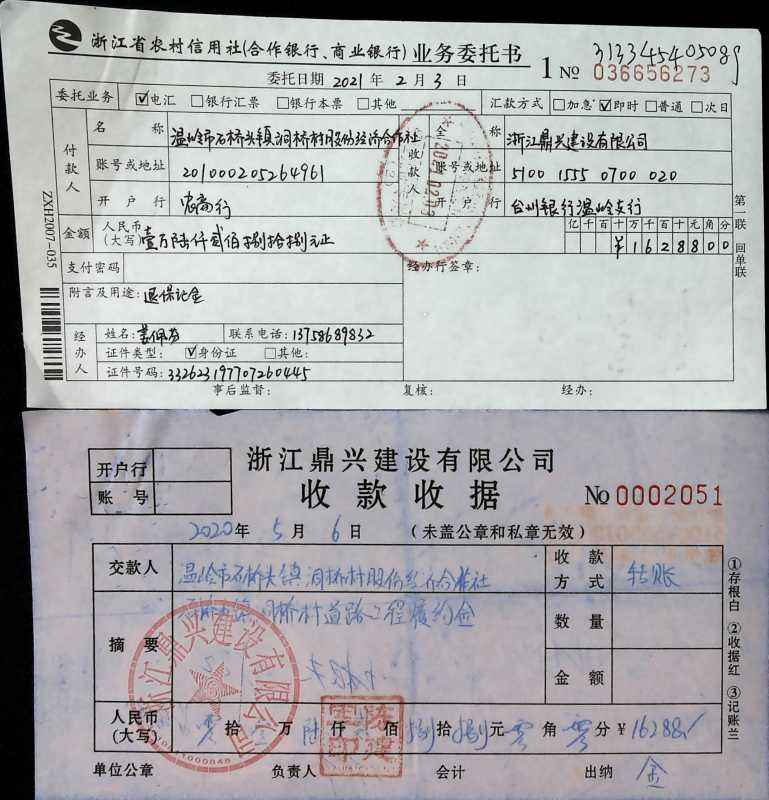 浙江省农村信用社(合作银行、商业银行)业务委托书
313345405089
1 No 036656273
委托日期 2021 年 2 月 3 日
委托业务 ☑电汇 □银行汇票 □银行本票 □其他 汇款方式 □加急 ☑即时 □普通 □次日
付款人 名称 温岭市石桥头镇洞桥村股份经济合作社
账号或地址 201000205264961
开户行 农商行
收款人 全称 浙江鼎兴建设有限公司
账号或地址 5100 1555 0700 020
开户行 台州银行温岭支行
2021.02.03
金额 人民币(大写) 壹万陆仟贰佰捌拾捌元正
亿千百十万千百十元角分
¥1628800
支付密码
经办行签章:
附言及用途: 退保证金
经办人 姓名: 佩芬 联系电话: 13758689832
证件类型: ☑身份证 □其他:
证件号码: 332623197707260445
事后监督: 复核: 经办:
第一联 回单联
ZXH2007-035
开户行
账号
浙江鼎兴建设有限公司
收款收据
No 0002051
2020 年 5 月 6 日 (未盖公章和私章无效)
交款人 温岭市石桥头镇洞桥村股份经济合作社 收款方式 转账
摘要 石桥头镇洞桥村道路工程履约金
数量
金额
浙江鼎兴建设有限公司
人民币(大写) 零拾壹万陆仟 佰捌拾捌元零角零分 ¥16288
单位公章 负责人 会计 出纳 金
①存根白 ②收据红 ③记账兰